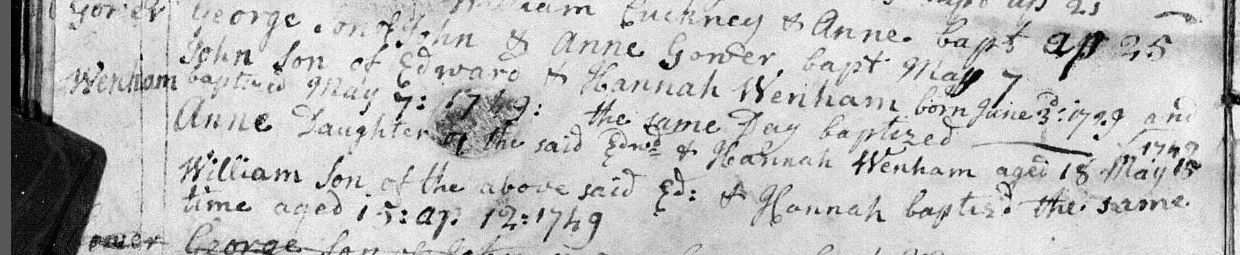 William Cuckney & Anne bapt ap 25
Gower George son of John & Anne Gower bapt May 7
John son of Edward & Hannah Wenham born June 3d: 1729 and
Wenham baptized May 7: 1749: the same Day baptized
Anne Daughter of the said Edwd & Hannah Wenham aged 18 May 15 1749
William son of the above said Ed: & Hannah baptizd the same
time aged 15: ap. 12: 1749
George son of John